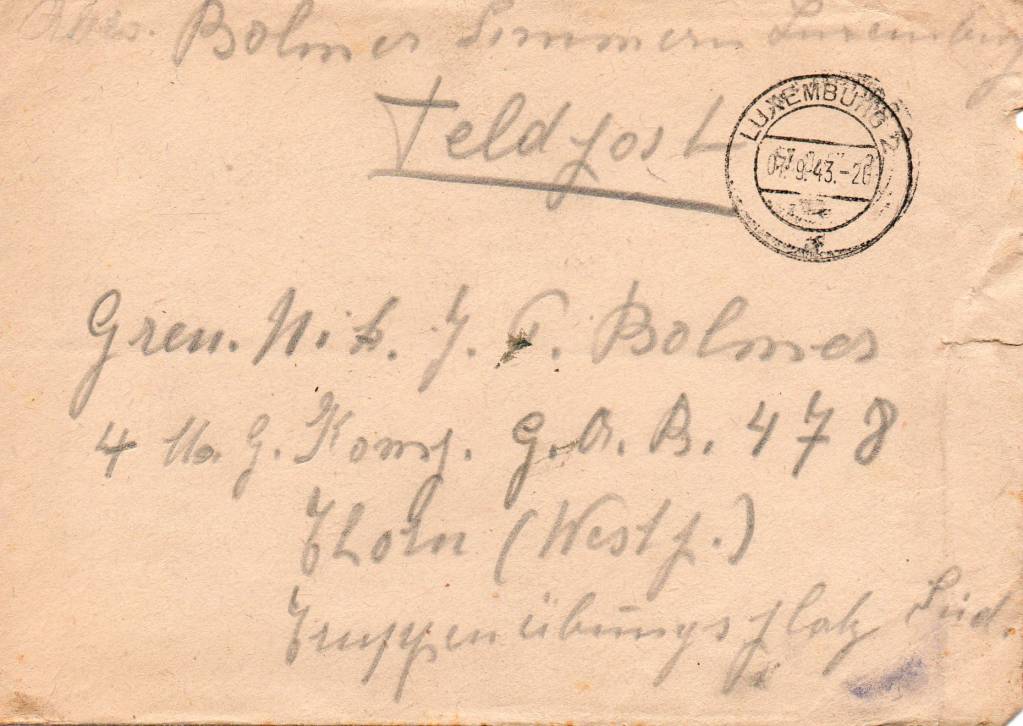 Bolmer Simmern Luxemburg
Feldpost
LUXEMBURG 2
07.9.43.-20
Gren. N. J. P. Bolmer
4 M. G. Komp. G. A. B. 478
Thorn (Westf.)
Truppenübungsplatz Süd.